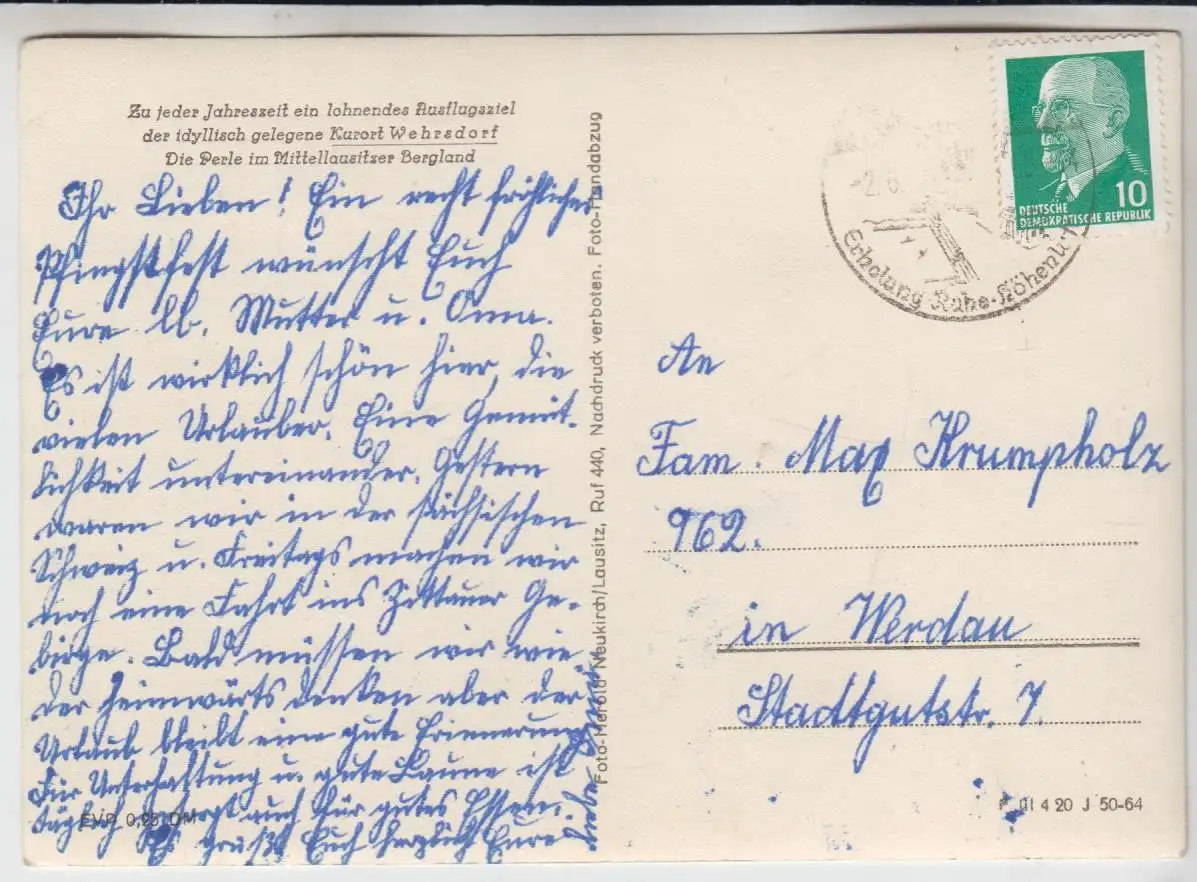 Zu jeder Jahreszeit ein lohnendes Ausflugsziel
der idyllisch gelegene Kurort Wehrsdorf
Die Perle im Mittellausitzer Bergland
Ihr Lieben! Ein recht fröhliches
Pfingstfest wünscht Euch
Eure lb. Mutter u. Oma.
Es ist wirklich schön hier, die
vielen Urlauber. Eine Gemüt-
lichkeit untereinander. Gestern
waren wir in der sächsischen
Schweiz u. Freitags machen wir
noch eine Fahrt ins Zittauer Ge-
birge. Bald müssen wir wie-
der heimwärts denken aber der
Urlaub bleibt eine gute Erinnerung
Für Unterhaltung u. gute Laune ist
täglich gesorgt auch für gutes Essen.
Es grüßt Euch herzlich Eure liebe
EVP 0,25 DM
Foto-Herold Neukirch/Lausitz, Ruf 440, Nachdruck verboten. Foto-Handabzug
-2.6.
Erholung-Ruhe-Höhenu
10
DEUTSCHE
DEMOKRATISCHE REPUBLIK
An
Fam. Max Krumpholz
962.
in Werdau
Stadtgutstr. 7.
III 4 20 J 50-64